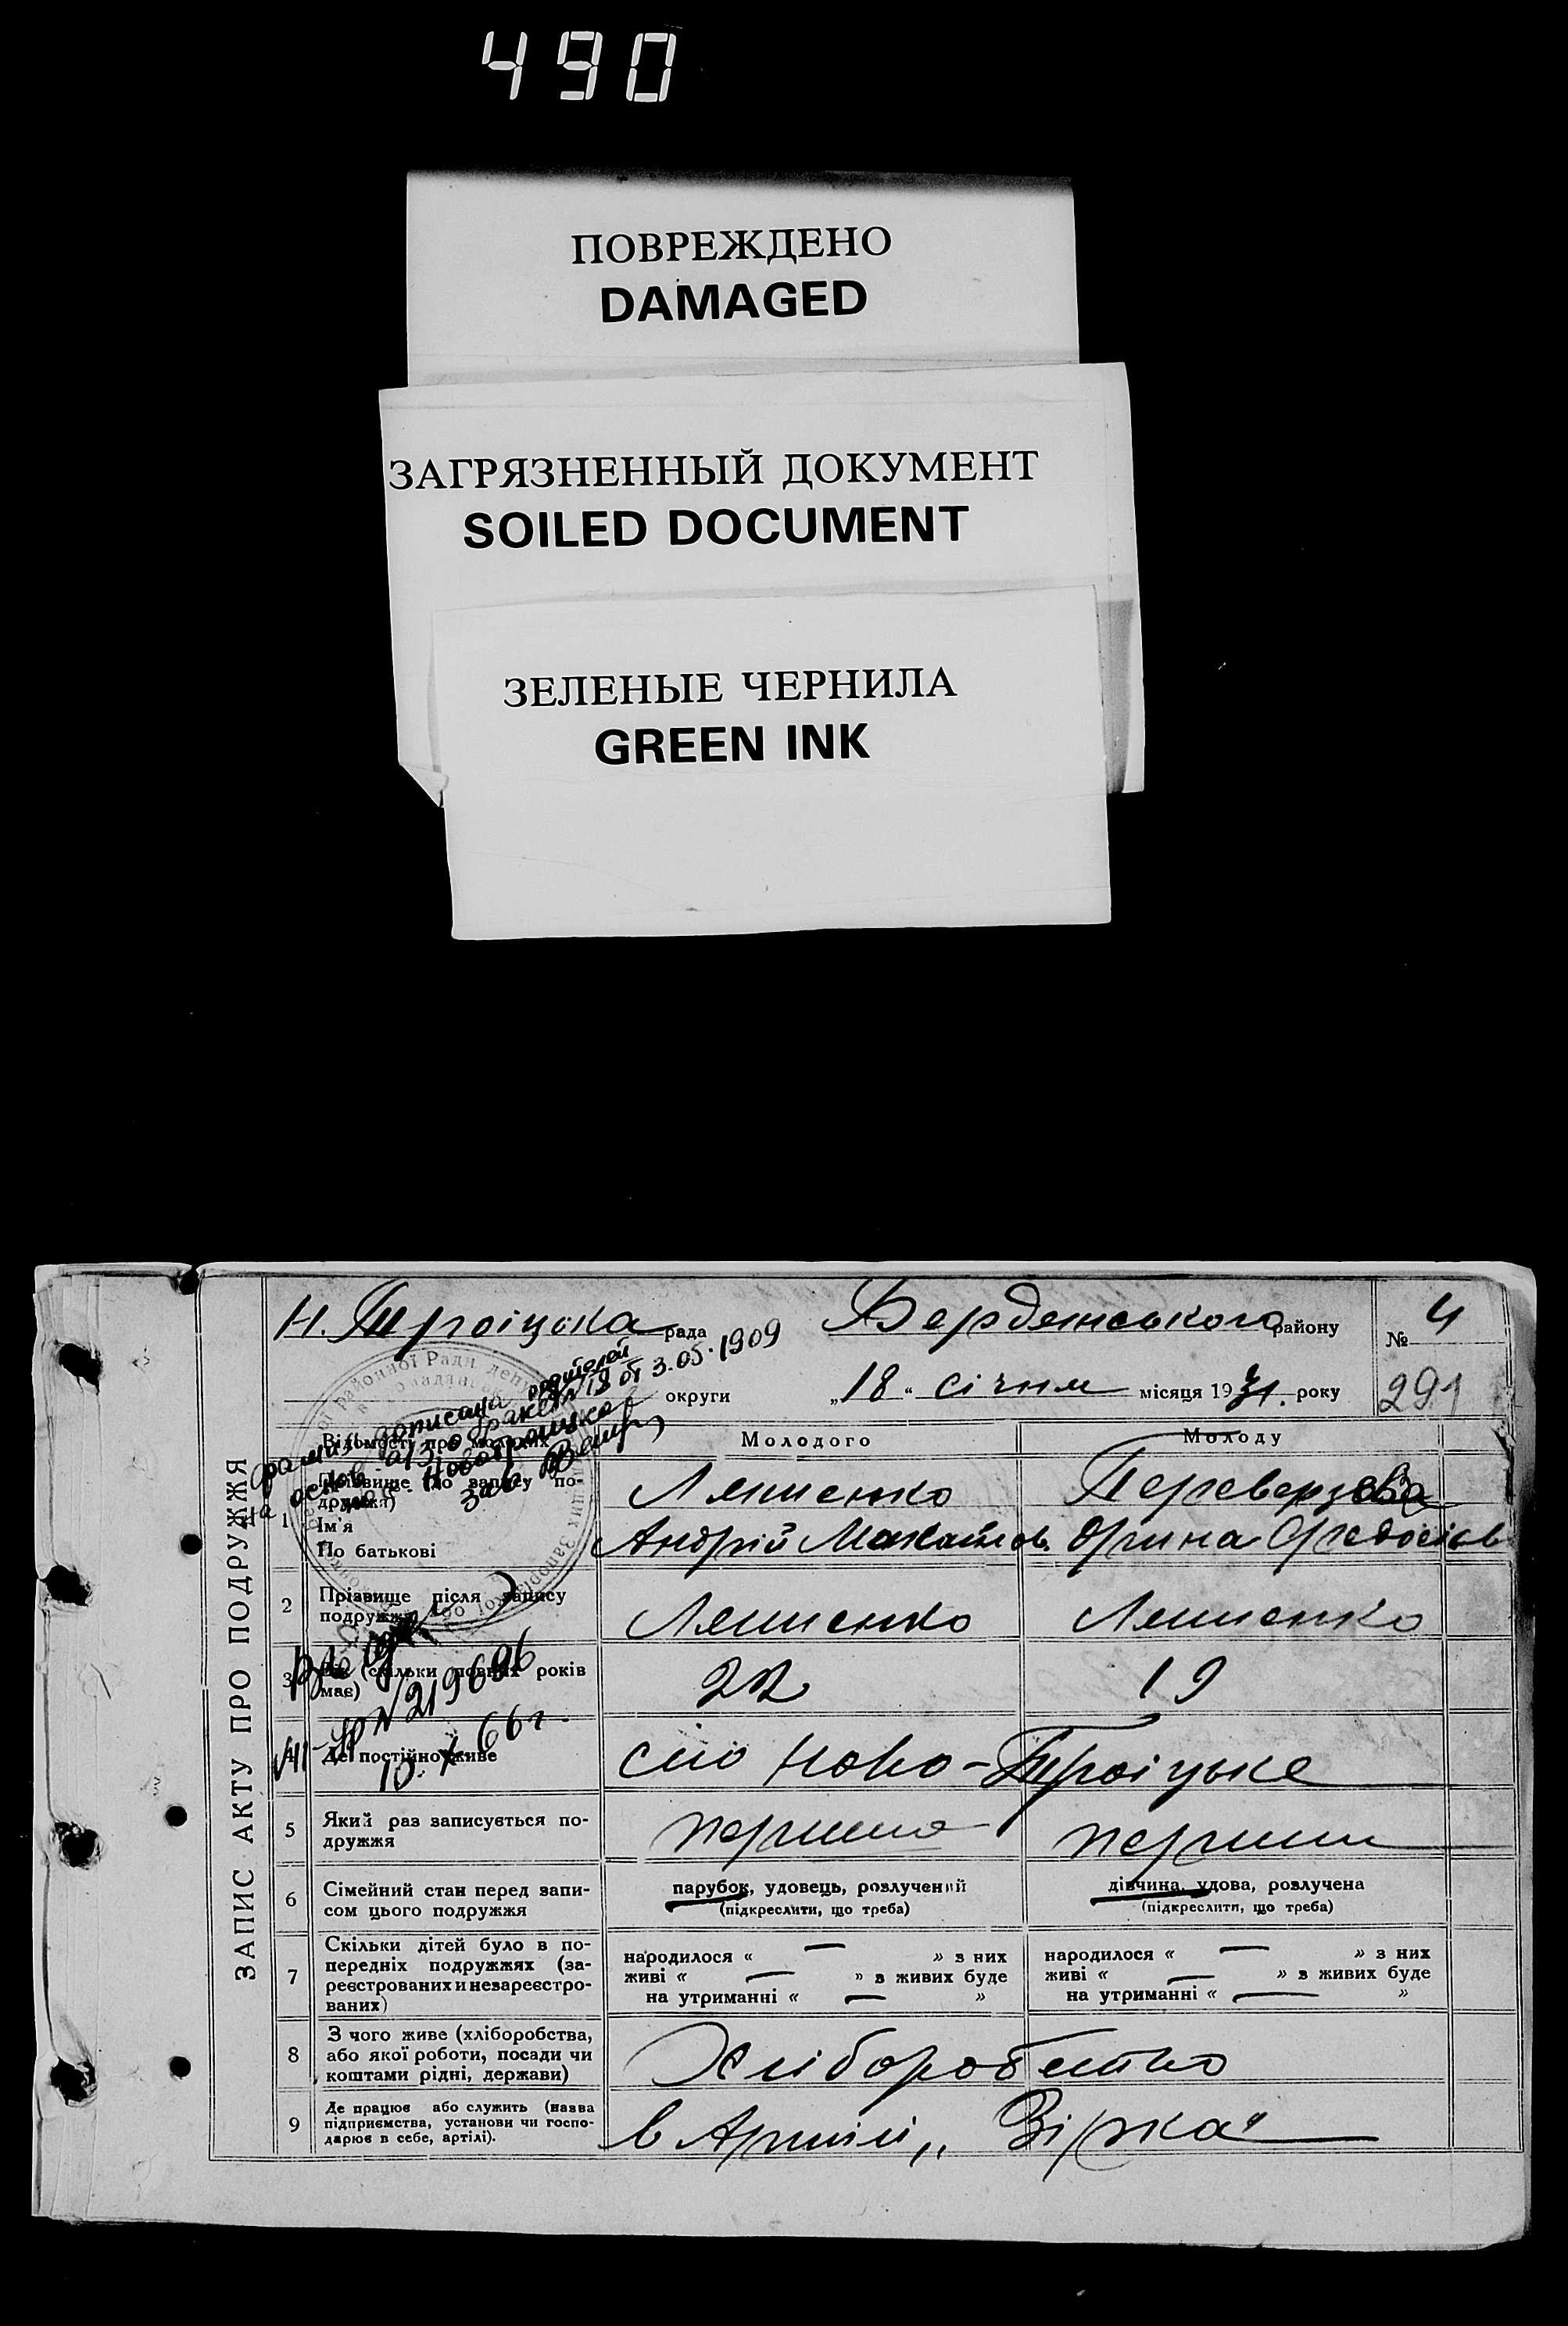 490
ПОВРЕЖДЕНО
DAMAGED
ЗАГРЯЗНЕННЫЙ ДОКУМЕНТ
SOILED DOCUMENT
ЗЕЛЕНЫЕ ЧЕРНИЛА
GREEN INK
ЗАПИС АКТУ ПРО ПОДРУЖЖЯ
Н. Троіцька рада Бердянського району № 4
округи „18“ січня місяця 1931. року 291
дописана родителей
о браке №18 от 3.05.1909
Відомості про молодих Молодого Молоду
1 Прізвище (до запису подружжя) Ляшенко Переверзева
Ім'я
По батькові Андрій Орина
2 Прізвище після запису подружжя Ляшенко Ляшенко
3 Вік (скільки повних років має) 22 19
№219696
10. X 66 г.
4 Де постійно живе село Ново-Троіцьке
5 Який раз записується по-
дружжя перший перший
6 Сімейний стан перед запи-
сом цього подружжя парубок, удовець, розлучений дівчина, удова, розлучена
(підкреслити, що треба) (підкреслити, що треба)
7 Скільки дітей було в по-
передніх подружжях (за-
реєстрованих и незареєстро-
ваних)
народилося « — » з них народилося « — » з них
живі « — » з живих буде живі « — » з живих буде
на утриманні « — » на утриманні « — »
8 З чого живе (хліборобства,
або якої роботи, посади чи
коштами рідні, держави) Хліборобство
9 Де працює або служить (назва
підприємства, установи чи госпо-
дарює в себе, артілі). в Артілі „Зірка“